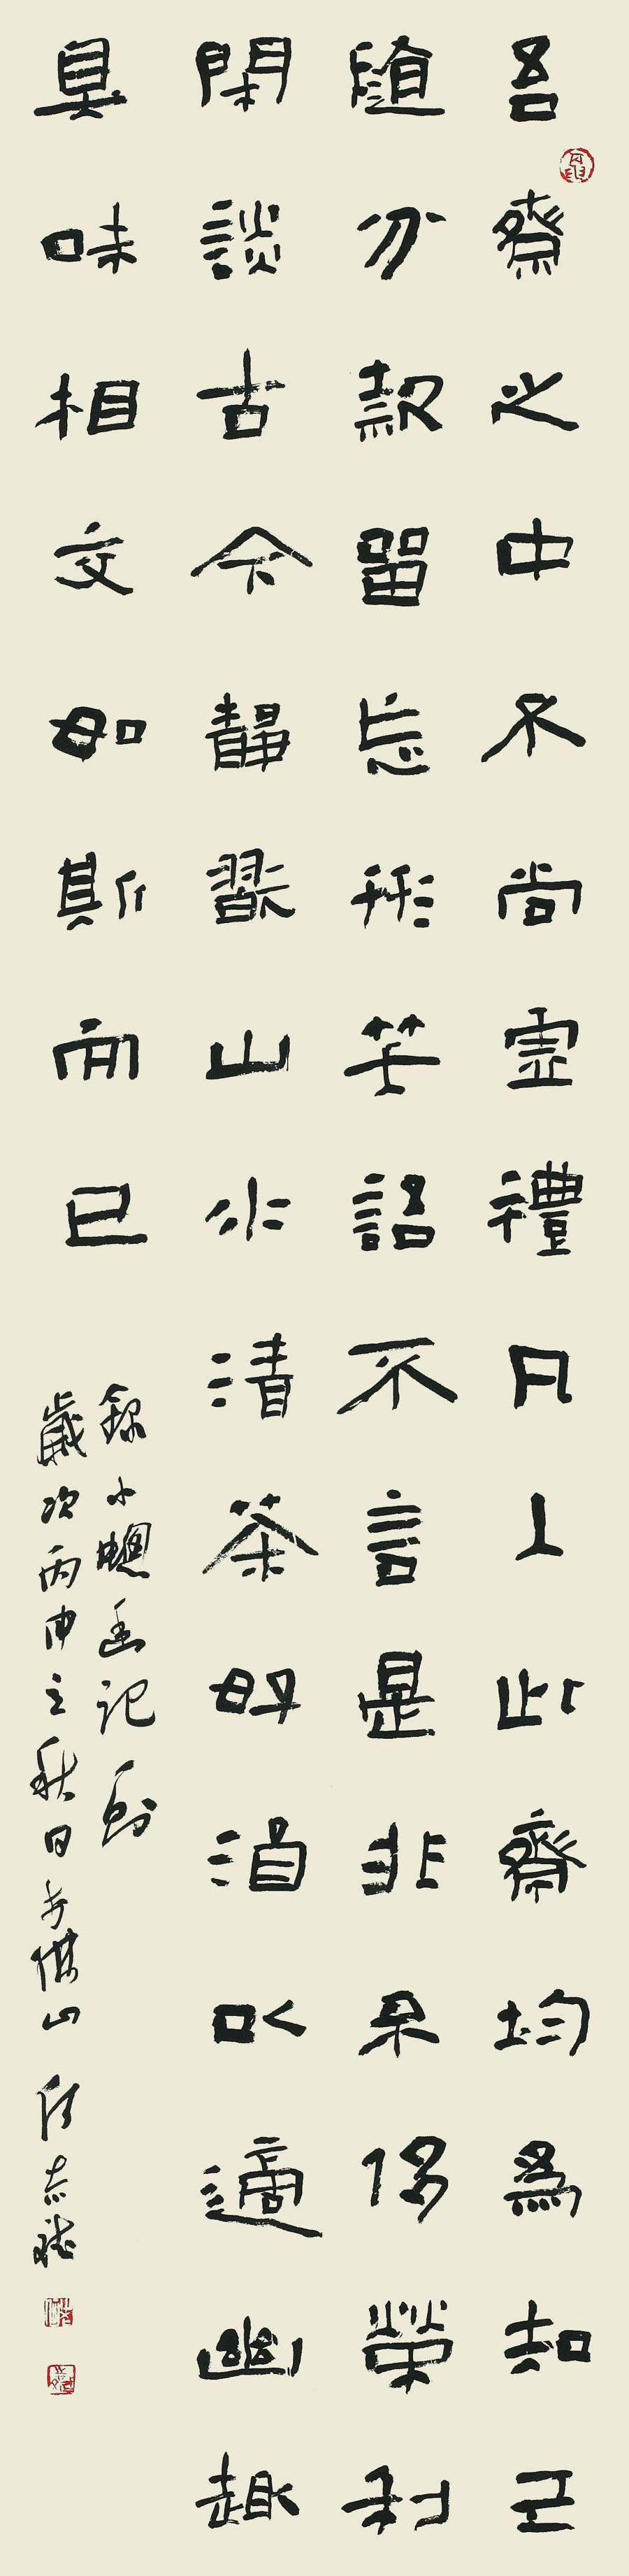 吾齋之中不尚虛禮凡入此齋均為知己
隨分款留忘形笑語不言是非不侈榮利
閑談古今靜翫山水清茶好酒以適幽趣
臭味相交如斯而已
錄小窗幽記句
歲次丙申之秋日於佛山